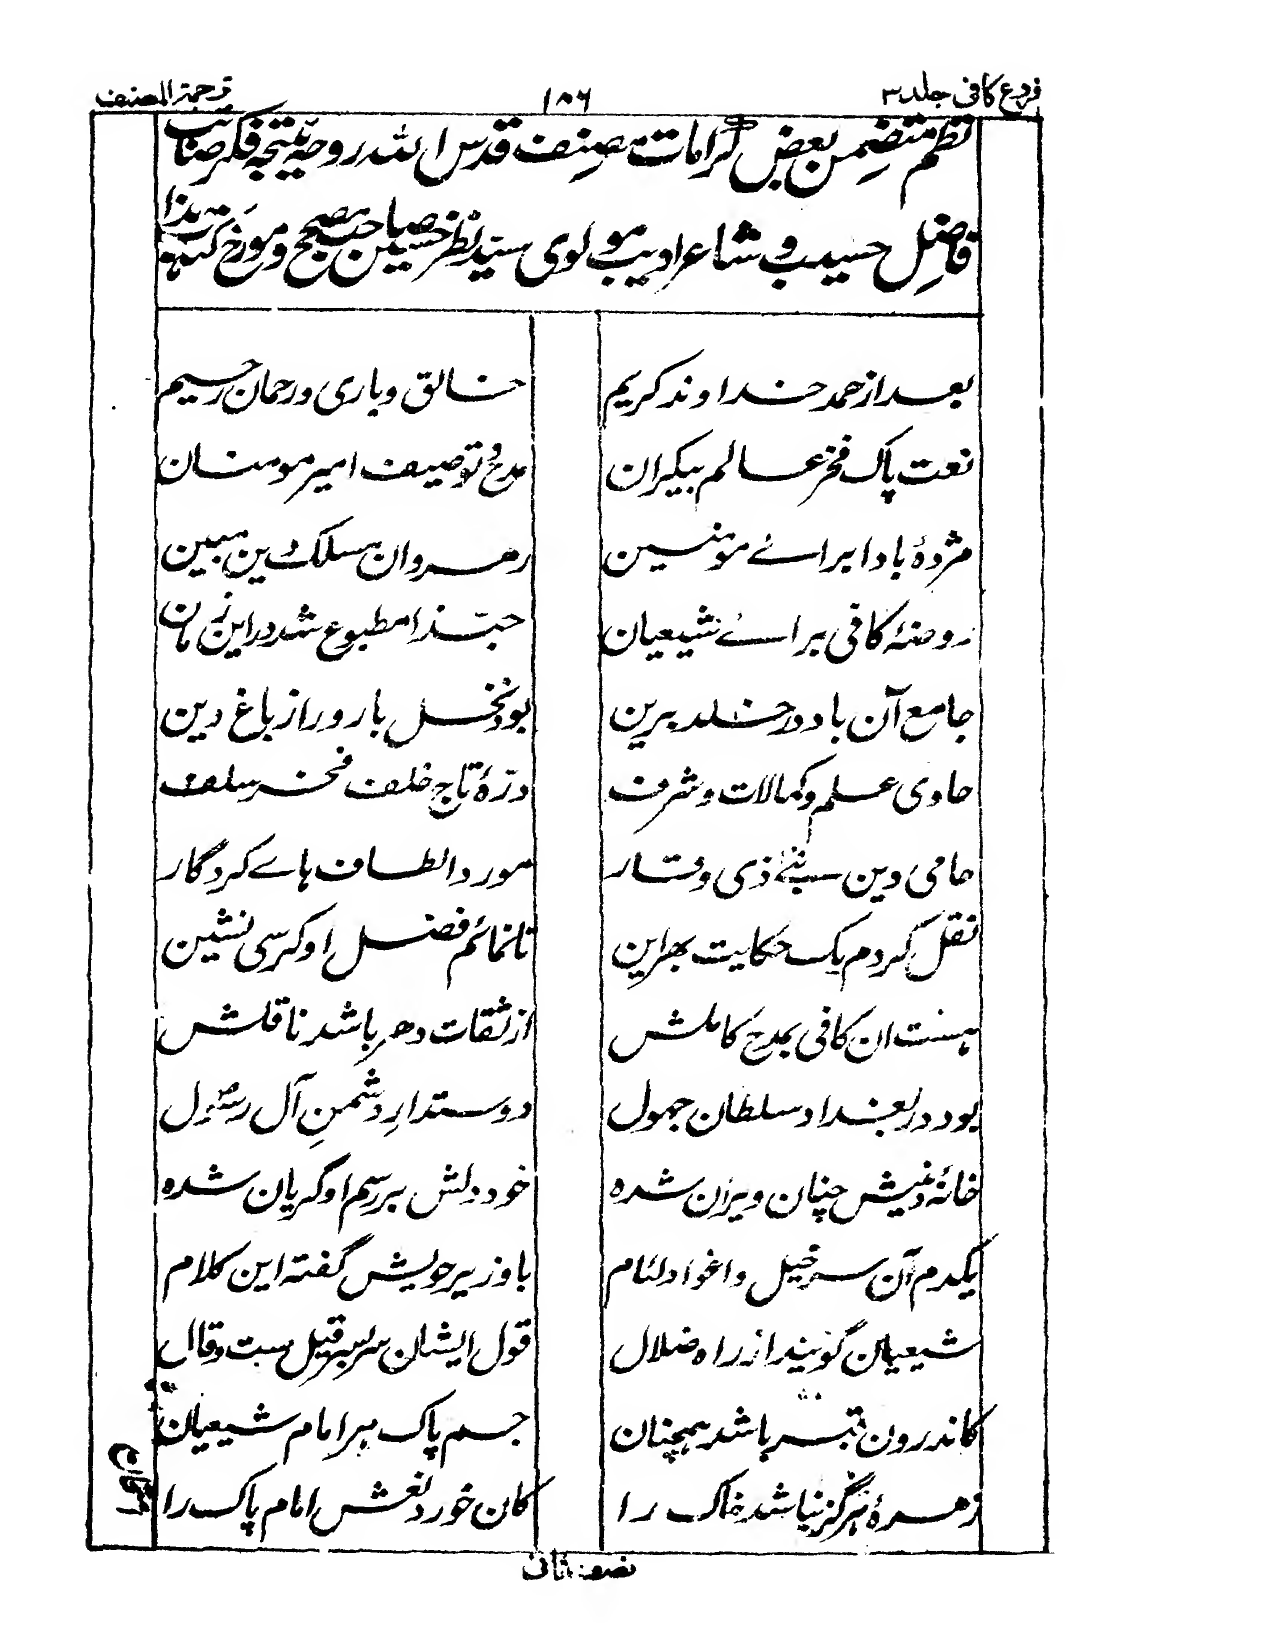 فروع کافی جلد ۳ ۱۵۶ ترجمۃ المصنف
نظم متضمن بعض کرامات مصنف قدس اللہ روحہ نتیجۂ فکر صائب
فاضل حسیب و شاعر ادیب مولوی سید نظر حسین صاحب مصحح و مورخ کتاب ہذا
بعد از حمد خداوند کریم خالق و باری و رحمان رحیم
نعت پاک فخر عالم بیکران مدح و توصیف امیر مومنان
مژدهٔ بادا برائے مومنین رهروان مسلک دین مبین
روضۂ کافی برائے شیعیان حبّذا مطبوع شد در این زمان
جامع آن باد در خلد برین بود نخل بارور از باغ دین
حاوی علم و کمالات و شرف درّهٔ تاج خلف فخر سلف
حامی دین ذی وقار مورد الطاف ہاے کردگار
نقل کردم یک حکایت بهر این تا نمائم فضل او کرسی نشین
ہست ان کافی بمدح کاملش از ثقات دهر باشد ناقلش
بود در بغداد سلطان جهول دوستدارِ دشمنِ آل رسول
خانهٔ دینش چنان ویران شده خود دلش بر رسم او گریان شده
یکدم آن سرخیل و اغواد لئام با وزیر خویش گفته این کلام
شیعیان گویند از راه ضلال قول ایشان سر بسر قیل ست و قال
کاندرون قبر باشد همچنان جسم پاک هر امام شیعیان
زهرهٔ هرگز نباشد خاک را کان خورد نعش امام پاک را
نصف ثانی